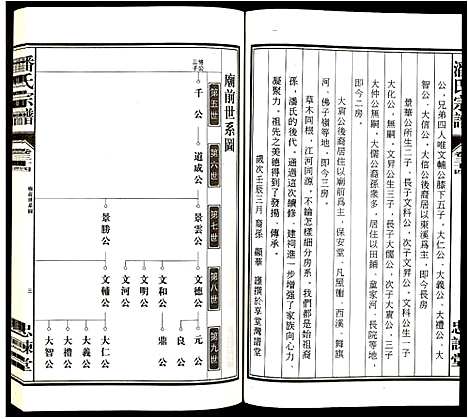 潘氏宗譜
卷之四
忠諫堂
公，兄弟四人唯文輔公膝下五子，大仁公、大義公、大禮公、大
智公、大信公，大信公後裔居以東溪爲主，即今長房
景華公所生三子，長子文科公，次子文昇公，三子
大化公，無嗣，文昇公生三子，長子大儒公，次子大
大仲公無嗣，大儒公裔孫衆多，居住以田鋪，童家河，長院等地，
即今二房。
大寅公後裔居住以廟前爲主，保安堂、凡屋衝、西溪、舞旗
河、佛子嶺等地，即今三房。
草木同根，江河同源，不論怎樣細分房系，我們都是始祖裔
孫，潘氏的後代，通過這次續修、建祠進一步增强了家族向心力、
凝聚力。祖先之美德得到了發揚、傳承。
歲次壬辰三月 裔孫 顯華 謹撰於享堂灣譜堂
廟前世系圖
第五世
第六世
第七世
第八世
第九世
千公
道成公
景雲公
景勝公
文德公
文和公
文明公
文河公
文輔公
元公
良公
鼎公
大仁公
大義公
大禮公
大智公
潘氏宗譜
三
忠諫堂